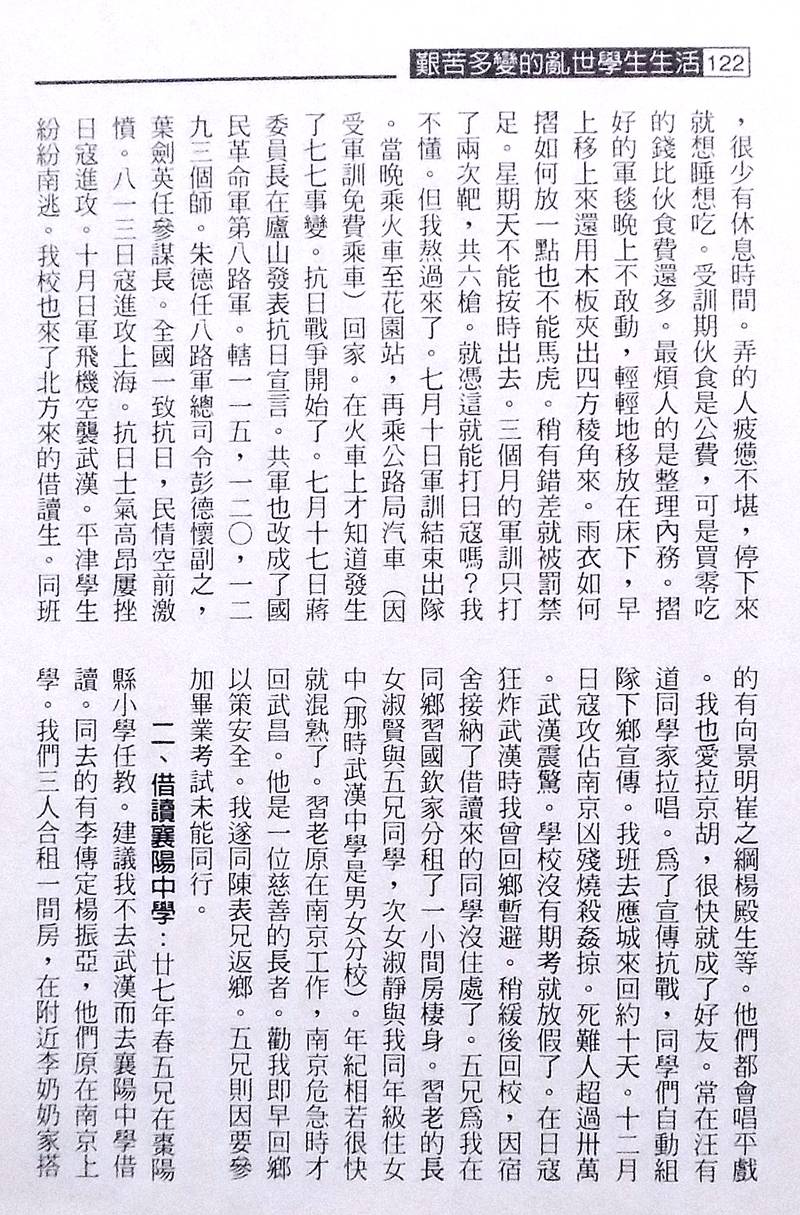 艱苦多變的亂世學生生活 122
，很少有休息時間。弄的人疲憊不堪，停下來
就想睡想吃。受訓期伙食是公費，可是買零吃
的錢比伙食費還多。最煩人的是整理內務。摺
好的軍毯晚上不敢動，輕輕地移放在床下，早
上移上來還用木板夾出四方稜角來。雨衣如何
摺如何放一點也不能馬虎。稍有錯差就被罰禁
足。星期天不能按時出去。三個月的軍訓只打
了兩次靶，共六槍。就憑這就能打日寇嗎？我
不懂。但我熬過來了。七月十日軍訓結束出隊
。當晚乘火車至花園站，再乘公路局汽車（因
受軍訓免費乘車）回家。在火車上才知道發生
了七七事變。抗日戰爭開始了。七月十七日蔣
委員長在廬山發表抗日宣言。共軍也改成了國
民革命軍第八路軍。轄一一五，一二〇，一二
九三個師。朱德任八路軍總司令彭德懷副之，
葉劍英任參謀長。全國一致抗日，民情空前激
憤。八一三日寇進攻上海。抗日士氣高昂屢挫
日寇進攻。十月日軍飛機空襲武漢。平津學生
紛紛南逃。我校也來了北方來的借讀生。同班
的有向景明崔之綱楊殿生等。他們都會唱平戲
。我也愛拉京胡，很快就成了好友。常在汪有
道同學家拉唱。爲了宣傳抗戰，同學們自動組
隊下鄉宣傳。我班去應城來回約十天。十二月
日寇攻佔南京凶殘燒殺姦掠。死難人超過卅萬
。武漢震驚。學校沒有期考就放假了。在日寇
狂炸武漢時我曾回鄉暫避。稍緩後回校，因宿
舍接納了借讀來的同學沒住處了。五兄爲我在
同鄉習國欽家分租了一小間房棲身。習老的長
女淑賢與五兄同學，次女淑靜與我同年級住女
中(那時武漢中學是男女分校)。年紀相若很快
就混熟了。習老原在南京工作，南京危急時才
回武昌。他是一位慈善的長者。勸我即早回鄉
以策安全。我遂同陳表兄返鄉。五兄則因要參
加畢業考試未能同行。
二、借讀襄陽中學：廿七年春五兄在棗陽
縣小學任教。建議我不去武漢而去襄陽中學借
讀。同去的有李傳定楊振亞，他們原在南京上
學。我們三人合租一間房，在附近李奶奶家搭